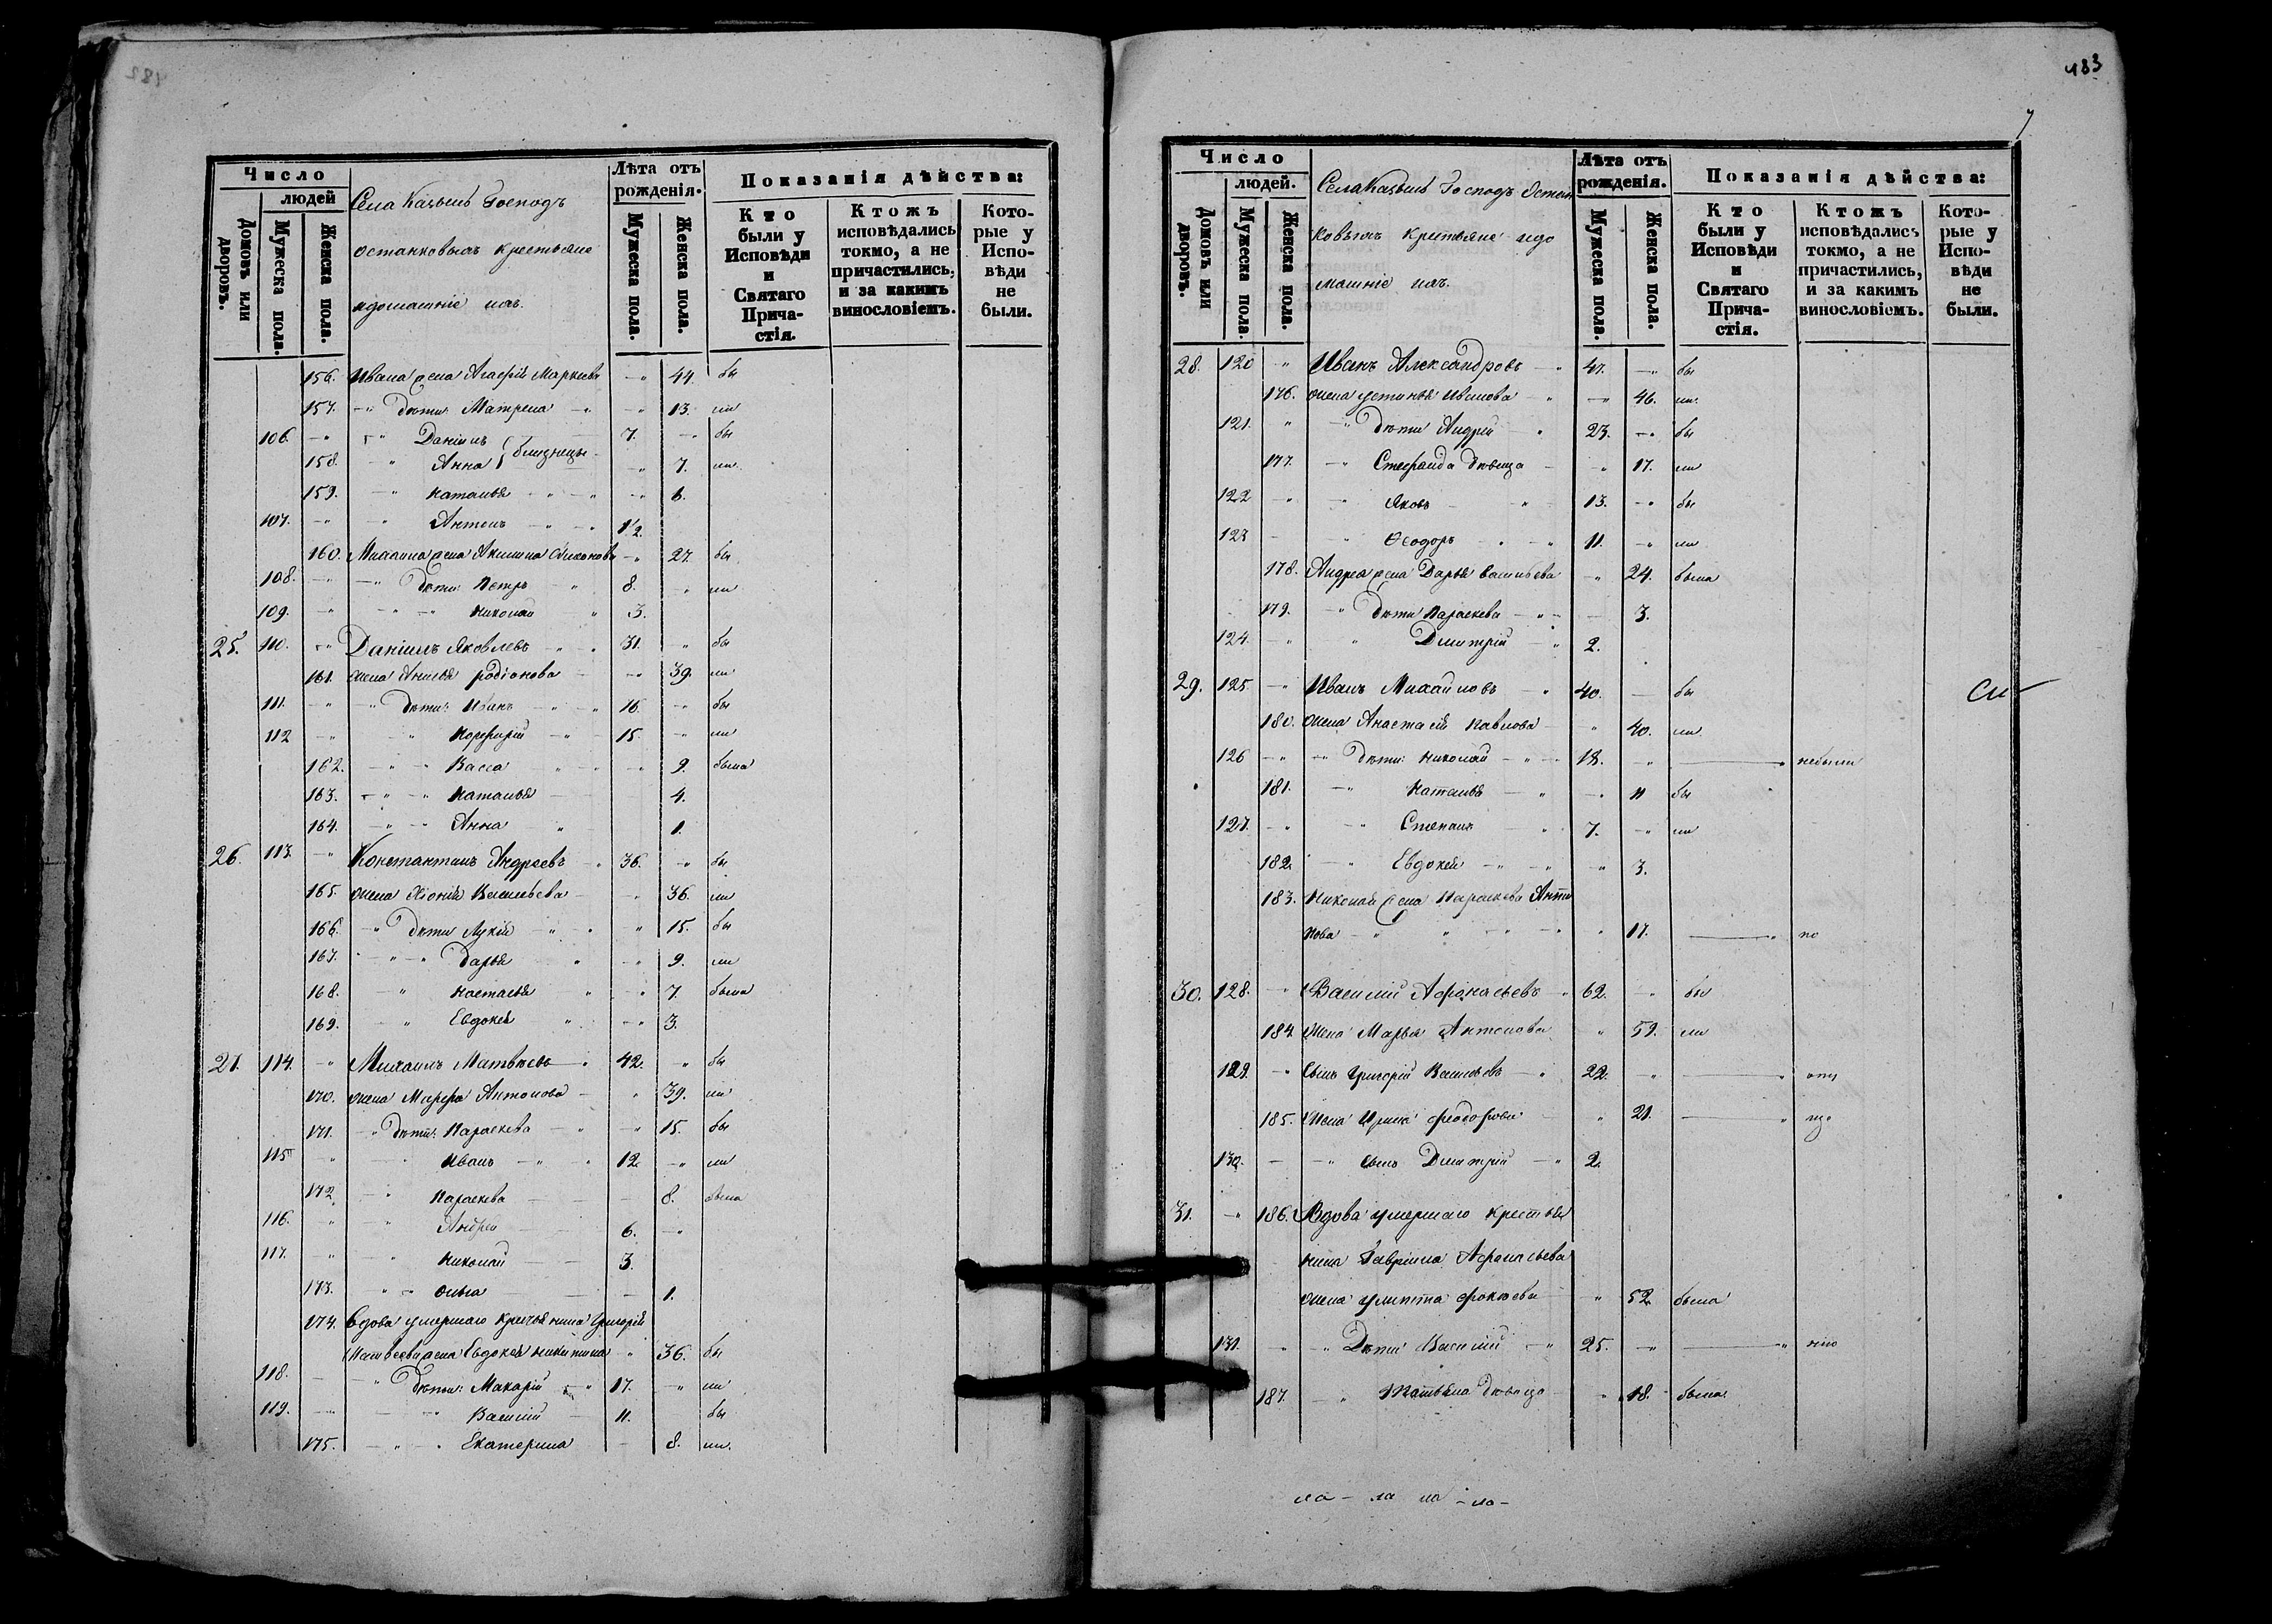 482
Число
людей
Домовъ или дворовъ.
Мужеска пола.
Женска пола.
Села Казъевъ Господъ
останковыхъ крестьяне
идомашніе ихъ.
Лѣта отъ рожденія.
Мужеска пола.
Женска пола.
Показанія дѣйства:
Кто были у Исповѣди и Святаго Прича-стія.
Ктожъ исповѣдались токмо, а не причастились, и за какимъ винословіемъ.
Кото-рые у Испо-вѣди не были.
156. Ивана жена Агафія Маркова — " 44. бы
157. — " дѣти: Матрена — " — " 13. ли
106. — " — " Даніилъ 7. — " бы
близнецы
158. — " Анна — " 7. ли
159. — " Наталья — " — " — " 6.
107. — " — " Антонъ — " — " 1 1/2
160. Михаила жена Акилина — " 27. бы
108. — " — " дѣти: Петръ " 8. " ли
109. — " — " — " Николай " 3.
25. 110. — " Даніилъ Яковлевъ — " 31. " бы
161. жена Анисья Родіонова — — " 39. ли
111. — " — " дѣти: Иванъ — " — " 16. — " бы
112 — " — " Порфирій — " — 15. — " ли
162. — " — " Васса — " 9. была
163. — " — " Наталья — 4.
164. — " — " Анна " 1.
26. 113. — " Константинъ Андреевъ — " 36. — " бы
165. жена Хіонія Васильева — — " 36. ли
166. — " дѣти Лукія — " " 15. бы
167. — " — " Дарья " — " 9. ли
168. — " Настасья " — " 7. была
169. — " Евдокея " — " 3.
27. 114. — " Михаилъ Матвѣевъ — " 42. " бы
170. жена Марфа Антонова — " 39. ли
171. — " дѣти: Параскева — " — " 15. бы
115 — " — Иванъ — " — " 12. — " ли
172 — " Параскева — — — 8. была
116. — " — " Андрей — 6. — "
117. — " — " Николай — 3.
173. — " — " Ольга — 1.
174. Вдова умершаго крестьянина Григорія
Матвеева жена Евдокея Никитина " 36. бы
118. — — " дѣти: Макарій — " 17. — " ли
119. — " — " Василій 11. бы
175. — " — " Екатерина — 8. ли.
483
7
Число
людей.
Домовъ или дворовъ.
Мужеска пола.
Женска пола.
Села Казъевъ Господъ Остан
ковыхъ крестьяне идо
машніе ихъ.
Лѣта отъ рожденія.
Мужеска пола.
Женска пола.
Показанія дѣйства:
Кто были у Исповѣди и Святаго Прича-стія.
Ктожъ исповѣдались токмо, а не причастились, и за какимъ винословіемъ.
Кото-рые у Испо-вѣди не были.
28. 120 " Иванъ Александровъ — " 47. — " бы
176. жена Устинья Иванова " — " 46. ли.
121. " — " дѣти Андрей " 23. — " бы
177. — " Стефанида дѣвица — — " 17. ли
122 — " — " Яковъ — " 13. — " бы
123 — " Ѳеодоръ — " — " 11. — " ли
178. Андрея жена Дарья Васильева — " 24. была
179. — " дѣти Параскева — " — 3.
124. — " " Дмитрій — " 2.
29. 125. — " Иванъ Михайловъ — " 40. — бы
180. жена Анастасія Павлова — " 40. ли
126 — " — " дѣти: Николай — " — 18. — " — " небыли
181. — " Наталья — " — " 11 бы
127. — " — " Степанъ — " 7. — " ли
182. — " Евдокея — " — " " 3.
183. Николая жена Параскева Анти
пова — " " — " — " " 17. — " по
30. 128. — " Василій Афонасьевъ — " 62. — " бы
184. жена Марья Антонова " 59. ли
129. — " сынъ Григорій Васильевъ — " 22. — " — "
185. жена Ирина Феодорова " 21. — "
130. — — " сынъ Дмитрій — " 2.
31. — " 186. Вдова умершаго крестья
нина Гавріила Афонасьева
жена Улитта Фокѣева " 52 была
131. — " — " Дѣти Василій — " 25. — " — "
187. — " Татьяна дѣвица " 18. была
ла — ла ла — ла —